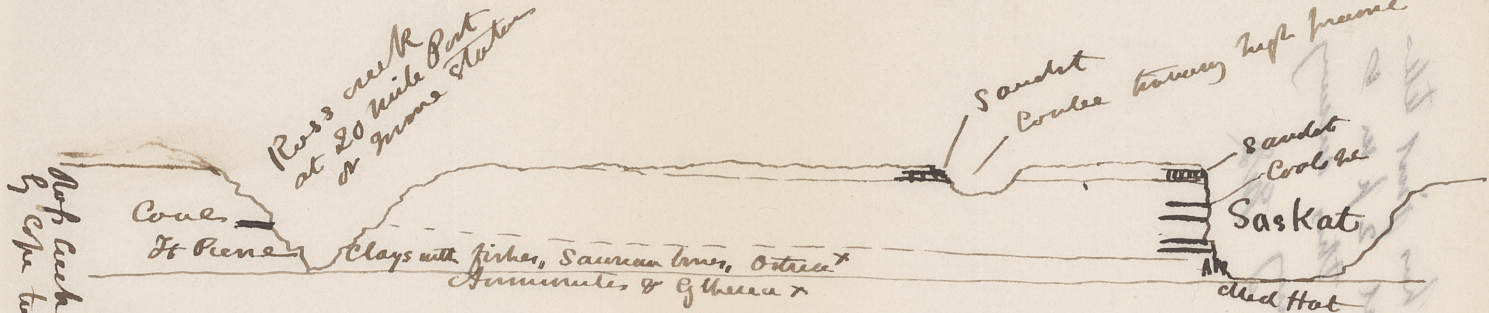 Ross creek
at 20 Mile Post
or Irvine Station
Sandst
Coulee high prairie
Sandst
Coals &c
Saskat
Ross Creek
Coals
Ft Pierre
Clays with fishes, Saurian bones, Ostrea x
Ammonites & Cytherea x
Med Hat